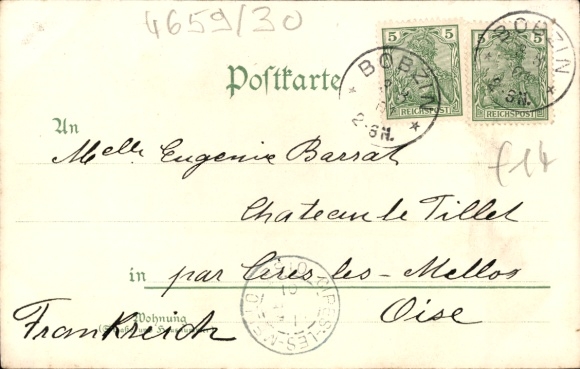 4659/30
5 5 5 5
REICHSPOST REICHSPOST
BOBZIN
2-3N.
BOBZIN
Postkarte
f14
An
Melle Eugenie Barrat
Chateau le Tillet
in par Cires les-Mellos
Oise
Wohnung
Frankreich
CIRES-LES-MELLO